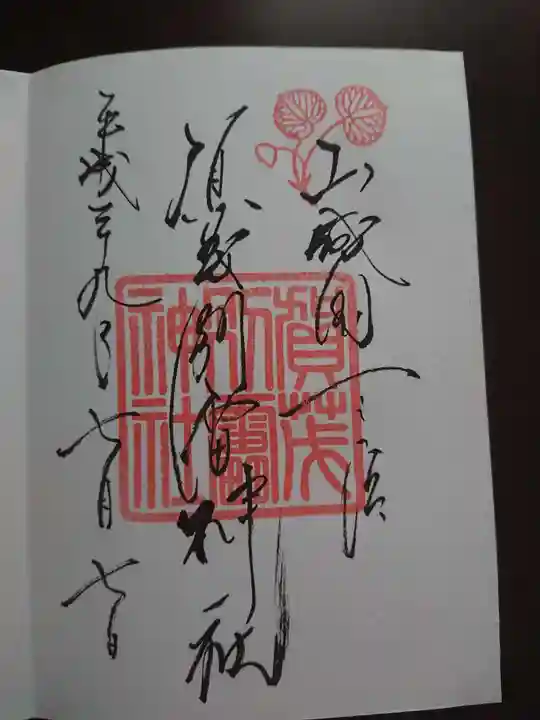 山城國一之宮
賀茂別雷神社
平成二十九年七月七日
賀茂
別雷
神社